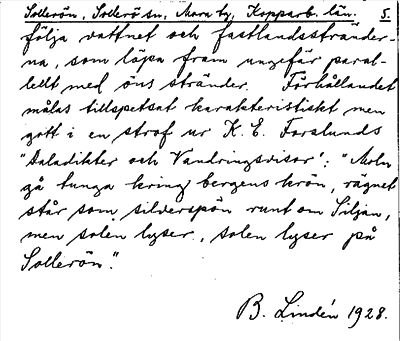 Sollerön, Sollerö sn, Mora tg, Kopparb. län. 5.
följa vattnet och fastlandsstränder-
na, som löpa fram ungefär paral-
lellt med öns stränder. Förhållandet
målas tillspetsat karakteristiskt men
gott i en strof ur K. E. Forslunds
"Daladikter och Vandringsvisor": "Moln
gå tunga kring bergens krön, rägnet
står som silverspön runt om Siljan,
men solen lyser, solen lyser på
Sollerön."
B. Lindén 1928.